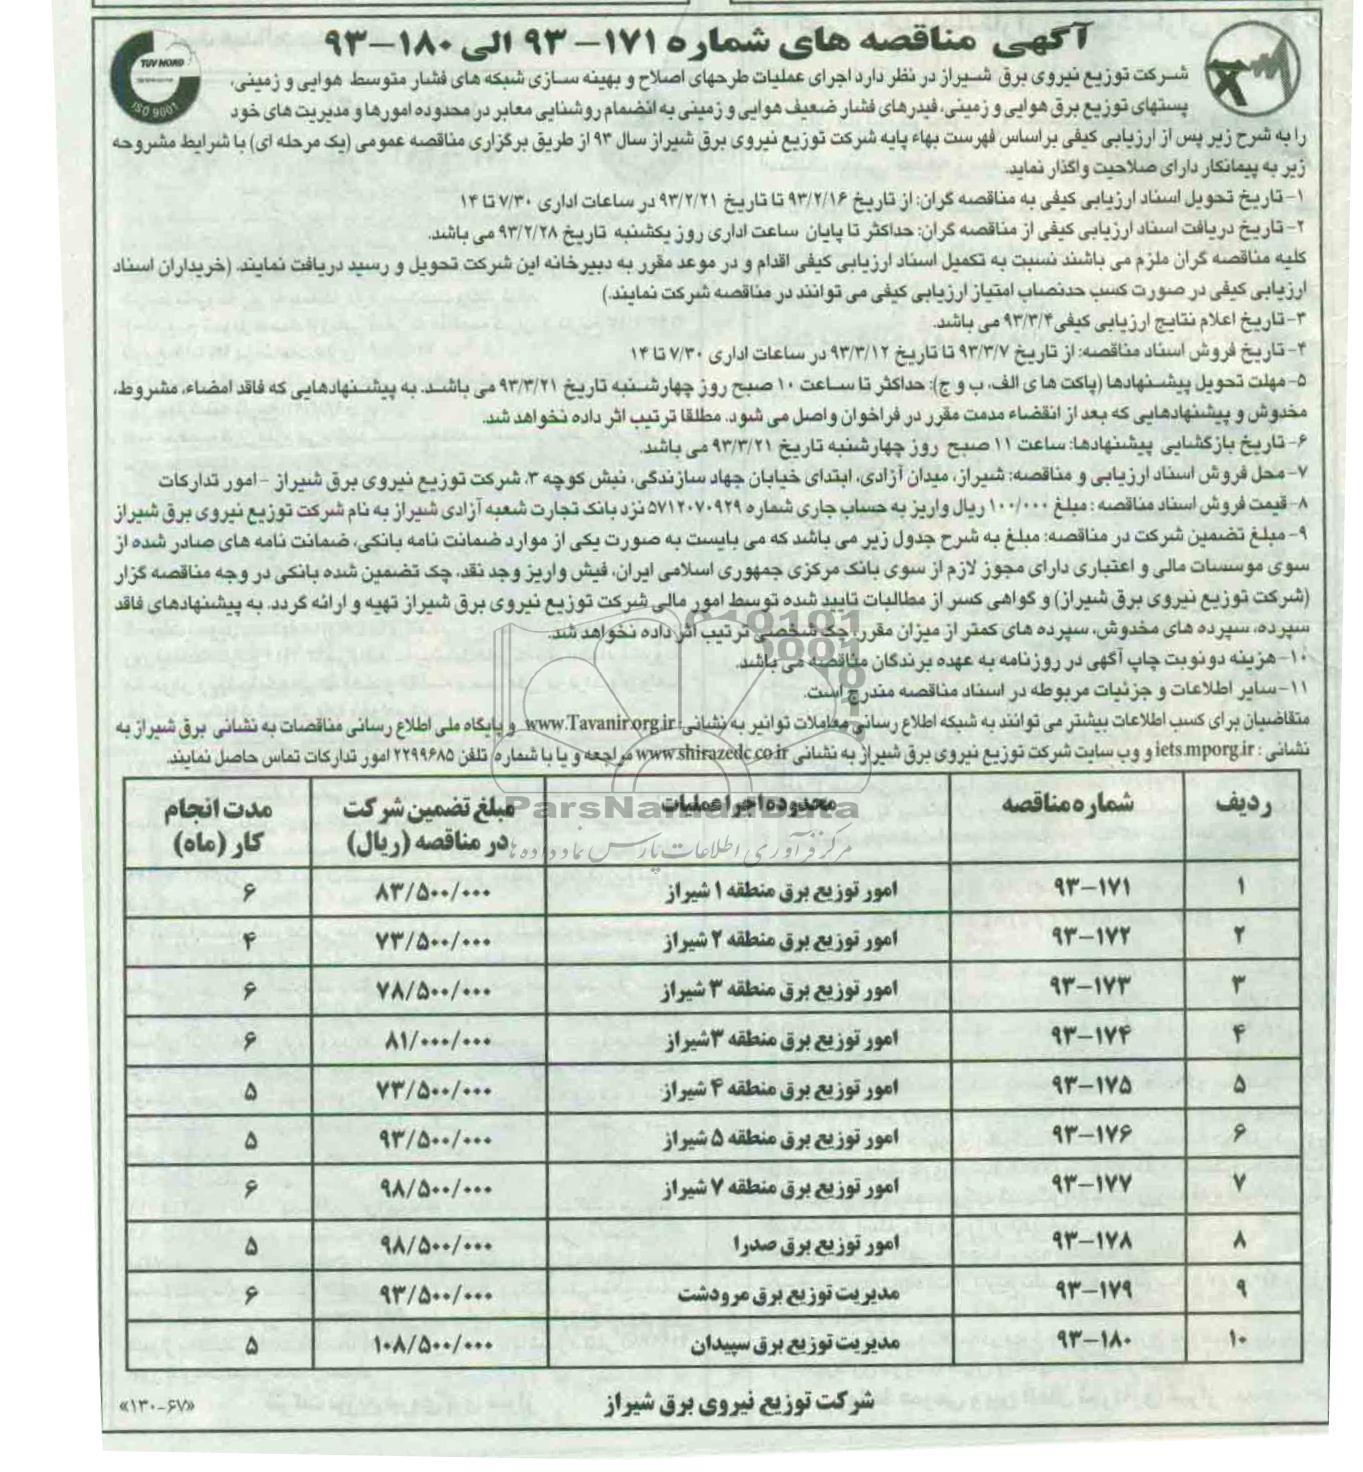 آگهی مناقصه های شماره ۱۷۱-۹۳ الی ۱۸۰-۹۳
TUV NORD
ISO 9001
شرکت توزیع نیروی برق شیراز در نظر دارد اجرای عملیات طرحهای اصلاح و بهینه سازی شبکه های فشار متوسط هوایی و زمینی،
پستهای توزیع برق هوایی و زمینی، فیدرهای فشار ضعیف هوایی و زمینی به انضمام روشنایی معابر در محدوده امورها و مدیریت های خود
را به شرح زیر پس از ارزیابی کیفی بر اساس فهرست بهاء پایه شرکت توزیع نیروی برق شیراز سال ۹۳ از طریق برگزاری مناقصه عمومی (یک مرحله ای) با شرایط مشروحه
زیر به پیمانکار دارای صلاحیت واگذار نماید.
۱- تاریخ تحویل اسناد ارزیابی کیفی به مناقصه گران: از تاریخ ۹۳/۲/۱۶ تا تاریخ ۹۳/۲/۲۱ در ساعات اداری ۷/۳۰ تا ۱۴
۲- تاریخ دریافت اسناد ارزیابی کیفی از مناقصه گران: حداکثر تا پایان ساعت اداری روز یکشنبه تاریخ ۹۳/۲/۲۸ می باشد.
کلیه مناقصه گران ملزم می باشند نسبت به تکمیل اسناد ارزیابی کیفی اقدام و در موعد مقرر به دبیرخانه این شرکت تحویل و رسید دریافت نمایند. (خریداران اسناد
ارزیابی کیفی در صورت کسب حدنصاب امتیاز ارزیابی کیفی می توانند در مناقصه شرکت نمایند.)
۳- تاریخ اعلام نتایج ارزیابی کیفی ۹۳/۳/۴ می باشد.
۴- تاریخ فروش اسناد مناقصه: از تاریخ ۹۳/۳/۷ تا تاریخ ۹۳/۳/۱۲ در ساعات اداری ۷/۳۰ تا ۱۴
۵- مهلت تحویل پیشنهادها (پاکت ها ی الف، ب و ج): حداکثر تا ساعت ۱۰ صبح روز چهارشنبه تاریخ ۹۳/۳/۲۱ می باشد. به پیشنهادهایی که فاقد امضاء، مشروط،
مخدوش و پیشنهادهایی که بعد از انقضاء مدمت مقرر در فراخوان واصل می شود. مطلقا ترتیب اثر داده نخواهد شد.
۶- تاریخ بازگشایی پیشنهادها: ساعت ۱۱ صبح روز چهارشنبه تاریخ ۹۳/۳/۲۱ می باشد.
۷- محل فروش اسناد ارزیابی و مناقصه: شیراز، میدان آزادی، ابتدای خیابان جهاد سازندگی، نبش کوچه ۳، شرکت توزیع نیروی برق شیراز - امور تدارکات
۸- قیمت فروش اسناد مناقصه: مبلغ ۱۰۰/۰۰۰ ریال واریز به حساب جاری شماره ۵۷۱۲۰۷۰۹۲۹ نزد بانک تجارت شعبه آزادی شیراز به نام شرکت توزیع نیروی برق شیراز
۹- مبلغ تضمین شرکت در مناقصه: مبلغ به شرح جدول زیر می باشد که می بایست به صورت یکی از موارد ضمانت نامه بانکی، ضمانت نامه های صادر شده از
سوی موسسات مالی و اعتباری دارای مجوز لازم از سوی بانک مرکزی جمهوری اسلامی ایران، فیش واریز وجد نقد، چک تضمین شده بانکی در وجه مناقصه گزار
(شرکت توزیع نیروی برق شیراز) و گواهی کسر از مطالبات تایید شده توسط امور مالی شرکت توزیع نیروی برق شیراز تهیه و ارائه گردد. به پیشنهادهای فاقد
سپرده، سپرده های مخدوش، سپرده های کمتر از میزان مقرر، چک شخصی ترتیب اثر داده نخواهد شد.
۱۰- هزینه دو نوبت چاپ آگهی در روزنامه به عهده برندگان مناقصه می باشد.
۱۱- سایر اطلاعات و جزئیات مربوطه در اسناد مناقصه مندرج است.
متقاضیان برای کسب اطلاعات بیشتر می توانند به شبکه اطلاع رسانی معاملات توانیر به نشانی: www.Tavanir.org.ir و پایگاه ملی اطلاع رسانی مناقصات به نشانی برق شیراز به
نشانی: iets.mporg.ir و وب سایت شرکت توزیع نیروی برق شیراز به نشانی www.shirazedc.co.ir مراجعه و یا با شماره تلفن ۲۲۹۹۶۸۵ امور تدارکات تماس حاصل نمایند.
ParsNamadData
مرکز فرآوری اطلاعات پارس نماد داده ها
ردیف شماره مناقصه محدوده اجرا عملیات مبلغ تضمین شرکت در مناقصه (ریال) مدت انجام کار (ماه)
۱ ۹۳-۱۷۱ امور توزیع برق منطقه ۱ شیراز ۸۳/۵۰۰/۰۰۰ ۶
۲ ۹۳-۱۷۲ امور توزیع برق منطقه ۲ شیراز ۷۳/۵۰۰/۰۰۰ ۴
۳ ۹۳-۱۷۳ امور توزیع برق منطقه ۳ شیراز ۷۸/۵۰۰/۰۰۰ ۶
۴ ۹۳-۱۷۴ امور توزیع برق منطقه ۳ شیراز ۸۱/۰۰۰/۰۰۰ ۶
۵ ۹۳-۱۷۵ امور توزیع برق منطقه ۴ شیراز ۷۳/۵۰۰/۰۰۰ ۵
۶ ۹۳-۱۷۶ امور توزیع برق منطقه ۵ شیراز ۹۳/۵۰۰/۰۰۰ ۵
۷ ۹۳-۱۷۷ امور توزیع برق منطقه ۷ شیراز ۹۸/۵۰۰/۰۰۰ ۶
۸ ۹۳-۱۷۸ امور توزیع برق صدرا ۹۸/۵۰۰/۰۰۰ ۵
۹ ۹۳-۱۷۹ مدیریت توزیع برق مرودشت ۹۳/۵۰۰/۰۰۰ ۶
۱۰ ۹۳-۱۸۰ مدیریت توزیع برق سپیدان ۱۰۸/۵۰۰/۰۰۰ ۵
شرکت توزیع نیروی برق شیراز
«۱۳۰-۶۷»